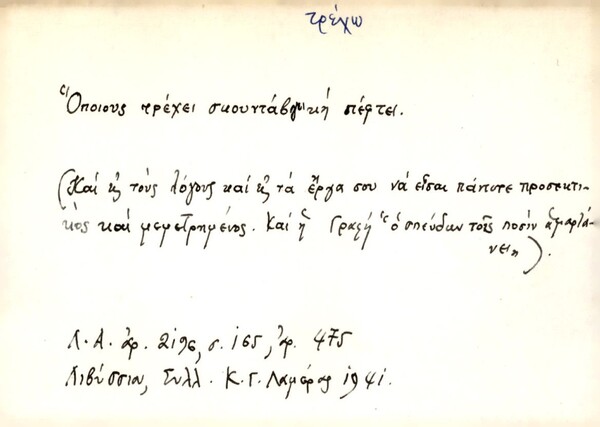 τρέχω
Ὅποιους τρέχει σκουντάβγει κή πέφτει.
(Καί 'ς τούς λόγους καί 'ς τά ἔργα σου νά εἶσαι πάντοτε προσεκτι-
κός καί μεμετρημένος. Καί ἡ Γραφή "ὁ σπεύδων τοῖς ποσίν ἁμαρτά-
νει").
Λ.Α. ἀρ. 2196, σ. 165, ἀρ. 475
Λιβύσσιον, Συλλ. Κ.Γ. Λαμέρας 1941.